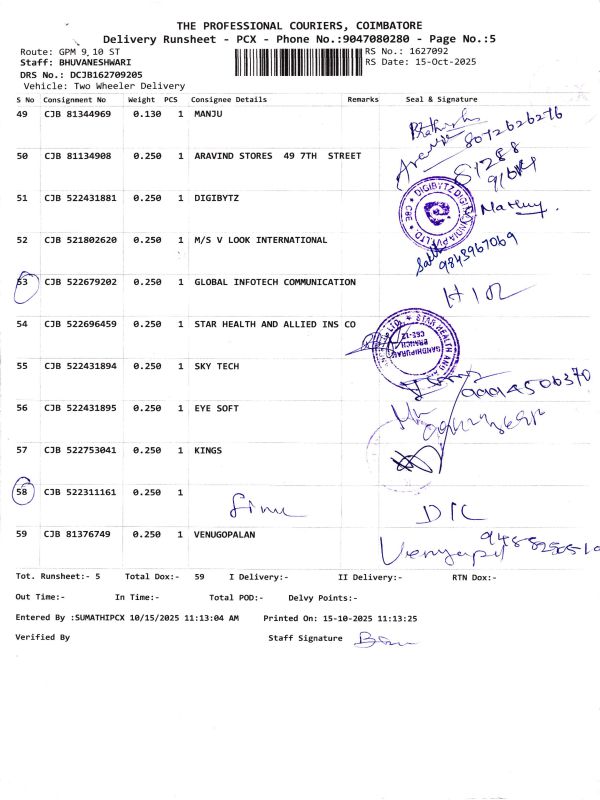 THE PROFESSIONAL COURIERS, COIMBATORE
Delivery Runsheet - PCX - Phone No.:9047080280 - Page No.:5
Route: GPM 9,10 ST
RS No.: 1627092
Staff: BHUVANESHWARI
RS Date: 15-Oct-2025
DRS No.: DCJB162709205
Vehicle: Two Wheeler Delivery
S No Consignment No Weight PCS Consignee Details Remarks Seal & Signature
49 CJB 81344969 0.130 1 MANJU
8072626276
50 CJB 81134908 0.250 1 ARAVIND STORES 49 7TH STREET
51 CJB 522431881 0.250 1 DIGIBYTZ
52 CJB 521802620 0.250 1 M/S V LOOK INTERNATIONAL
9843967069
53 CJB 522679202 0.250 1 GLOBAL INFOTECH COMMUNICATION
54 CJB 522696459 0.250 1 STAR HEALTH AND ALLIED INS CO
55 CJB 522431894 0.250 1 SKY TECH
56 CJB 522431895 0.250 1 EYE SOFT
57 CJB 522753041 0.250 1 KINGS
58 CJB 522311161 0.250 1
D/C
59 CJB 81376749 0.250 1 VENUGOPALAN
Tot. Runsheet:- 5 Total Dox:- 59 I Delivery:- II Delivery:- RTN Dox:-
Out Time:- In Time:- Total POD:- Delvy Points:-
Entered By :SUMATHIPCX 10/15/2025 11:13:04 AM Printed On: 15-10-2025 11:13:25
Verified By Staff Signature